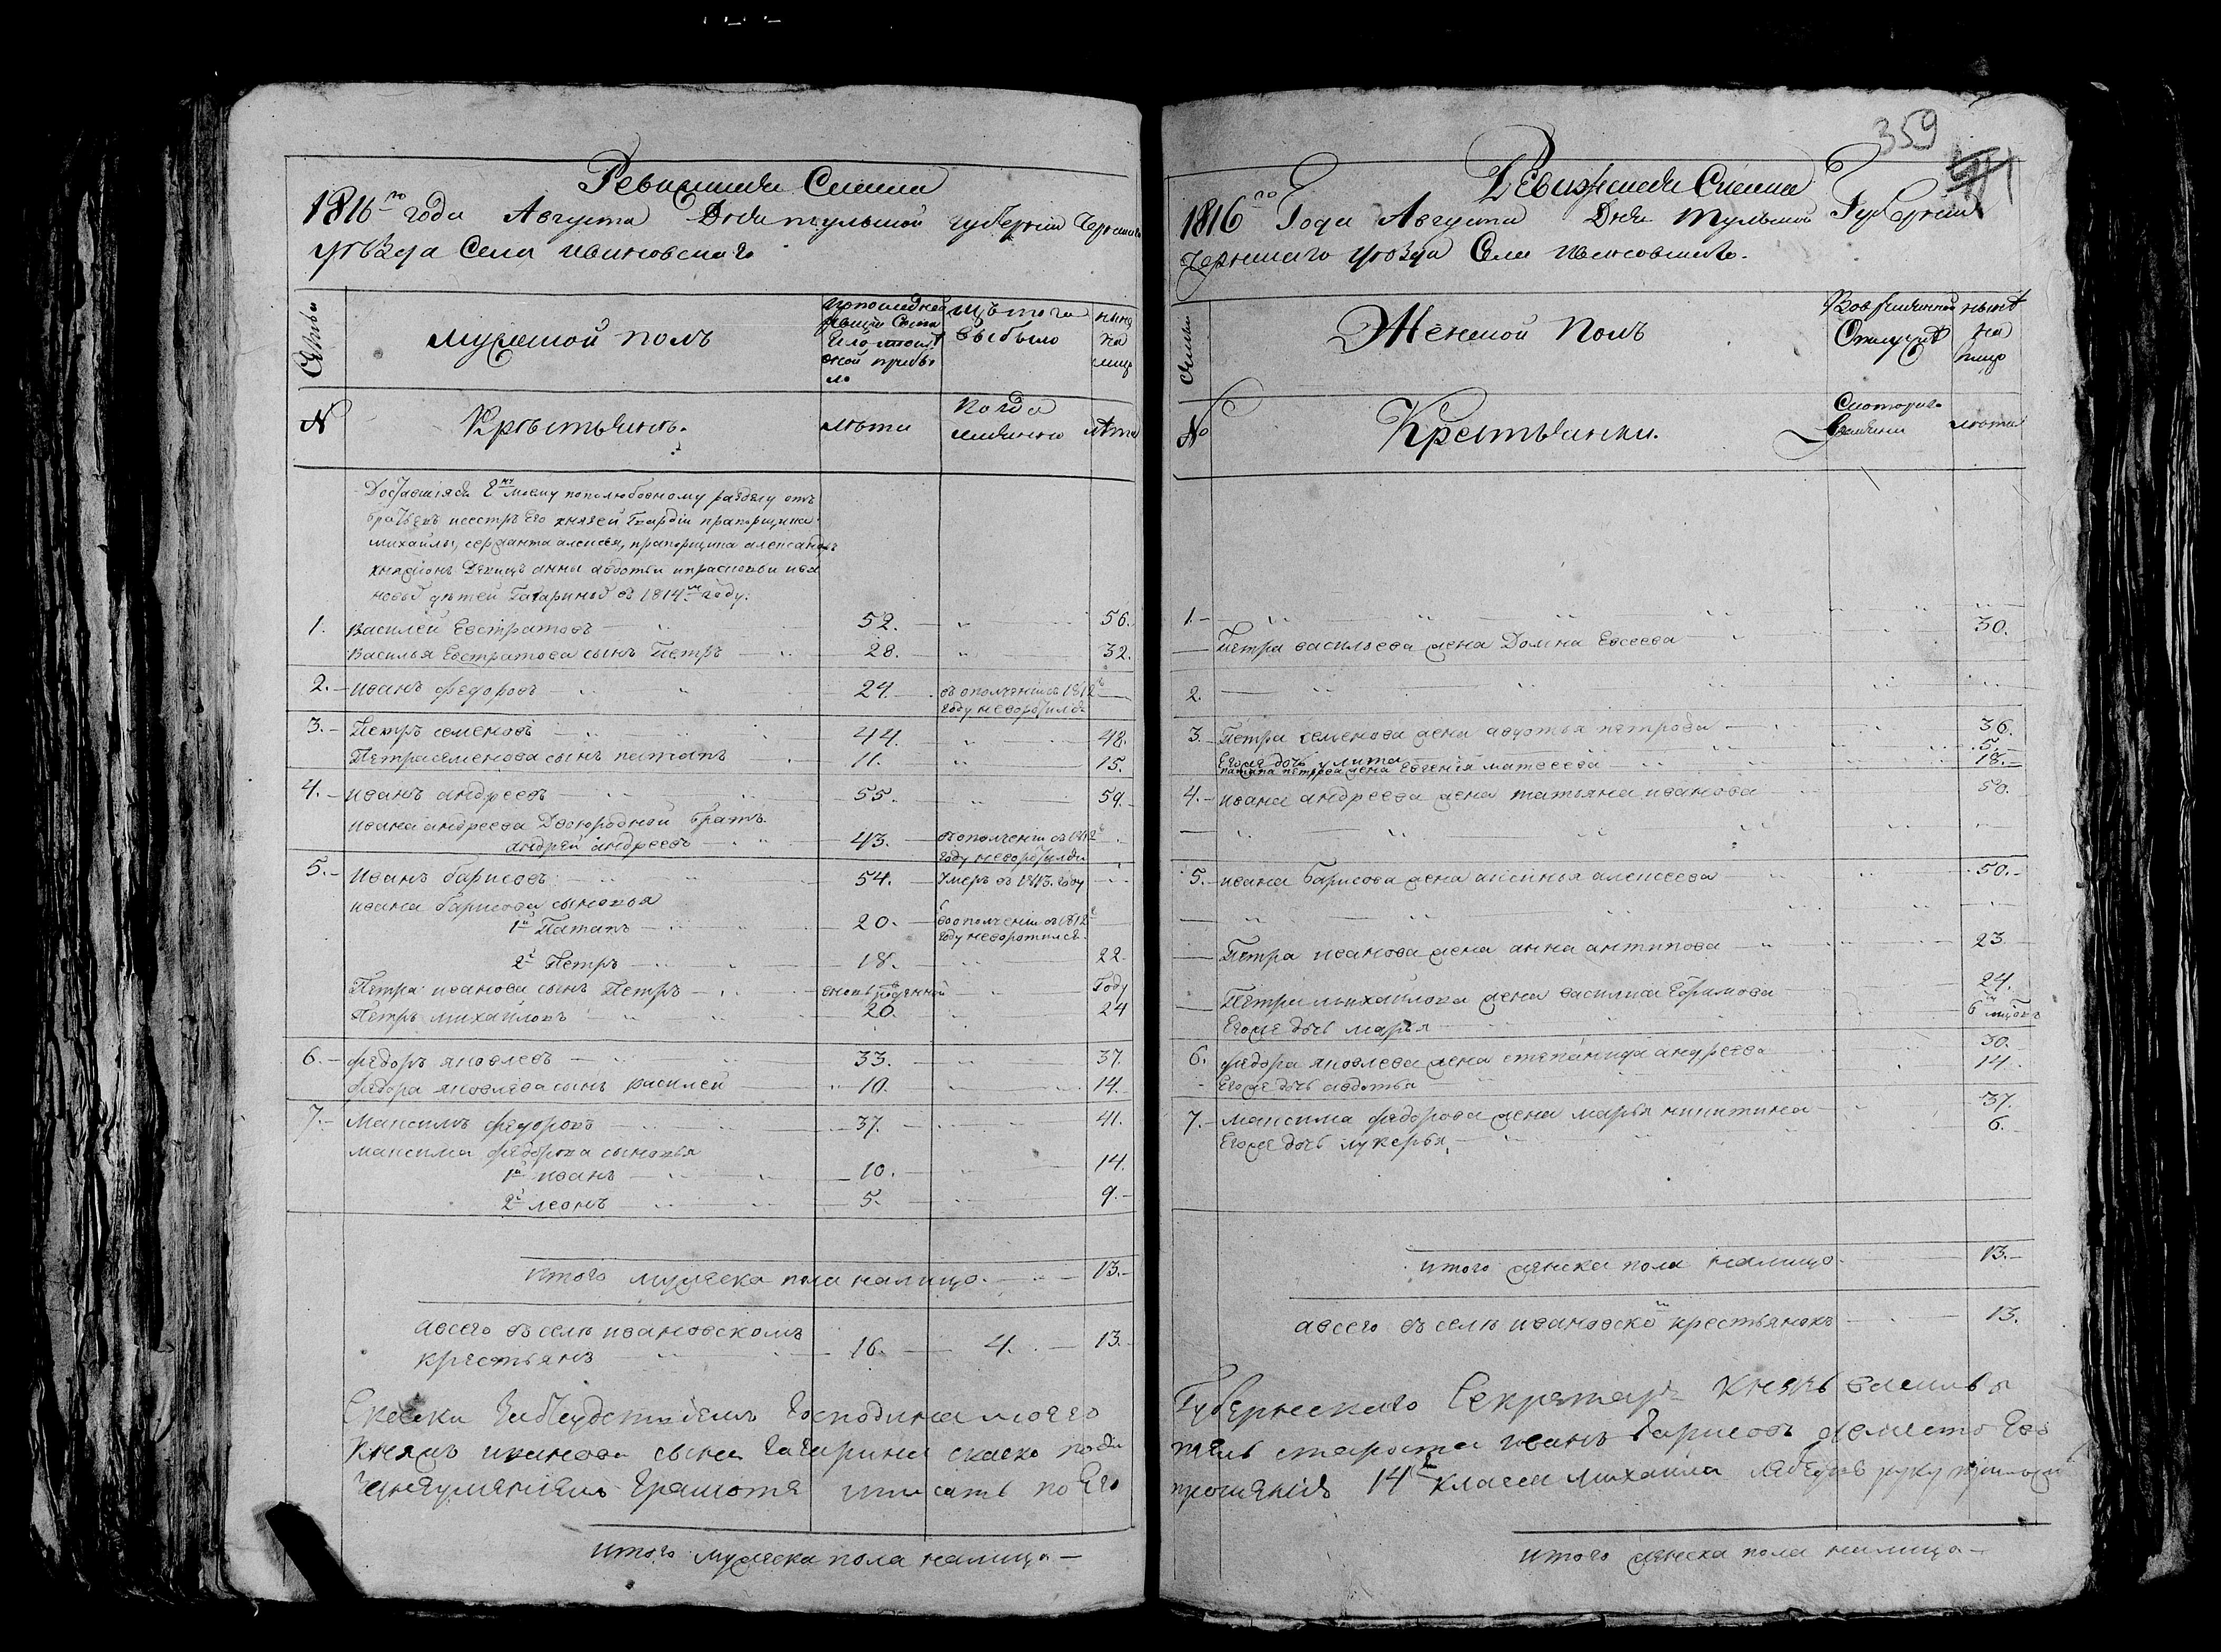 Ревижская Скаска
1816го года Августа Дня тульской губернии Чернскаго
уѣзда Села ивановскаго
Семьи
мужеской полъ
изъ того
выбыло
ныне
на
лицо
N
Крѣстьянѣ.
лѣты
когда
имянно
лѣта
Доставшiяся мнѣ пополюбовному разделу отъ
братьевъ исестръ его князей Гвардiи прапорщика
михайлы, сержанта алексея, прапорщика александра
княжонъ Девицъ анны авдотьи ипрасковьи ива
новыхъ детей Гагариныхъ въ 1814м году.
1. Василей Евстратовъ 52. 56.
Василья Евстратова сынъ Петръ 28. 32.
2. иванъ федоровъ 24. въ ополченiи въ 1812
году невозвратился
3. Петръ семеновъ 44. 48.
Петра семенова сынъ потапъ 11. 15.
4. иванъ андреевъ 55. 59.
ивана андреева Двоюродной братъ
андрей андреевъ 43. въ ополченiи въ 1812
году невозвратился
5. Иванъ барисовъ 54. Умеръ въ 1813. году
ивана барисова сыновья
1й Патапъ 20. въ ополченiи въ 1812
году невозвратился.
2й Петръ 18. 22
Петра иванова сынъ Петръ вновь рожденной Году
Петръ михайловъ 20. 24
6. федоръ яковлевъ 33. 37.
федора яковлева сынъ василей 10. 14.
7. Максимъ федоровъ 37. 41.
максима федорова сыновья
1й иванъ 10. 14.
2й леонъ 5. 9.
итого мужеска пола налицо. 13.
авсего въ селе ивановскомъ
крестьянъ 16. 4. 13.
Скаски
князь иванова сына Гагарина скаско
Грамоте писать по Его
итого мужеска пола налицо
359
Ревижская Скаска
1816го Года Августа Дня Тульской Губернии
Чернскаго уѣзда Села ивановскаго.
Семьи
Женской Полъ
Вовремянной
Отлучке
ныне
на
лицо
№
Крестьянки.
Скотораго
времяни
лѣта
1.
Петра васильева жена Домна Евсеева 30.
2.
3. Петра семенова жена авдотья петрова 36.
Егоже дочь улита 5.
патапа петрова жена Евгенiя матвеева 18.
4. ивана андреева жена татьяна иванова 50.
5. ивана барисова жена аксинья алексеева 50.
Петра иванова жена анна антипова 23
Петра михайлова жена василиса Ефимова 24.
Егоже дочь марья 6 мцовъ
6. федора яковлева жена степанида андреева 30.
Егоже дочь авдотья 14.
7. максима федорова жена марья никитина 37.
Егоже дочь лукерья, 6.
итого женска пола налицо. 13.
авсего въ селе ивановском крестьянокъ 13.
Губернскаго Секретаря князь
староста иванъ барисовъ авместо Его
прошенiя 14 класса михаила руку приложилъ
итого женска пола налицо